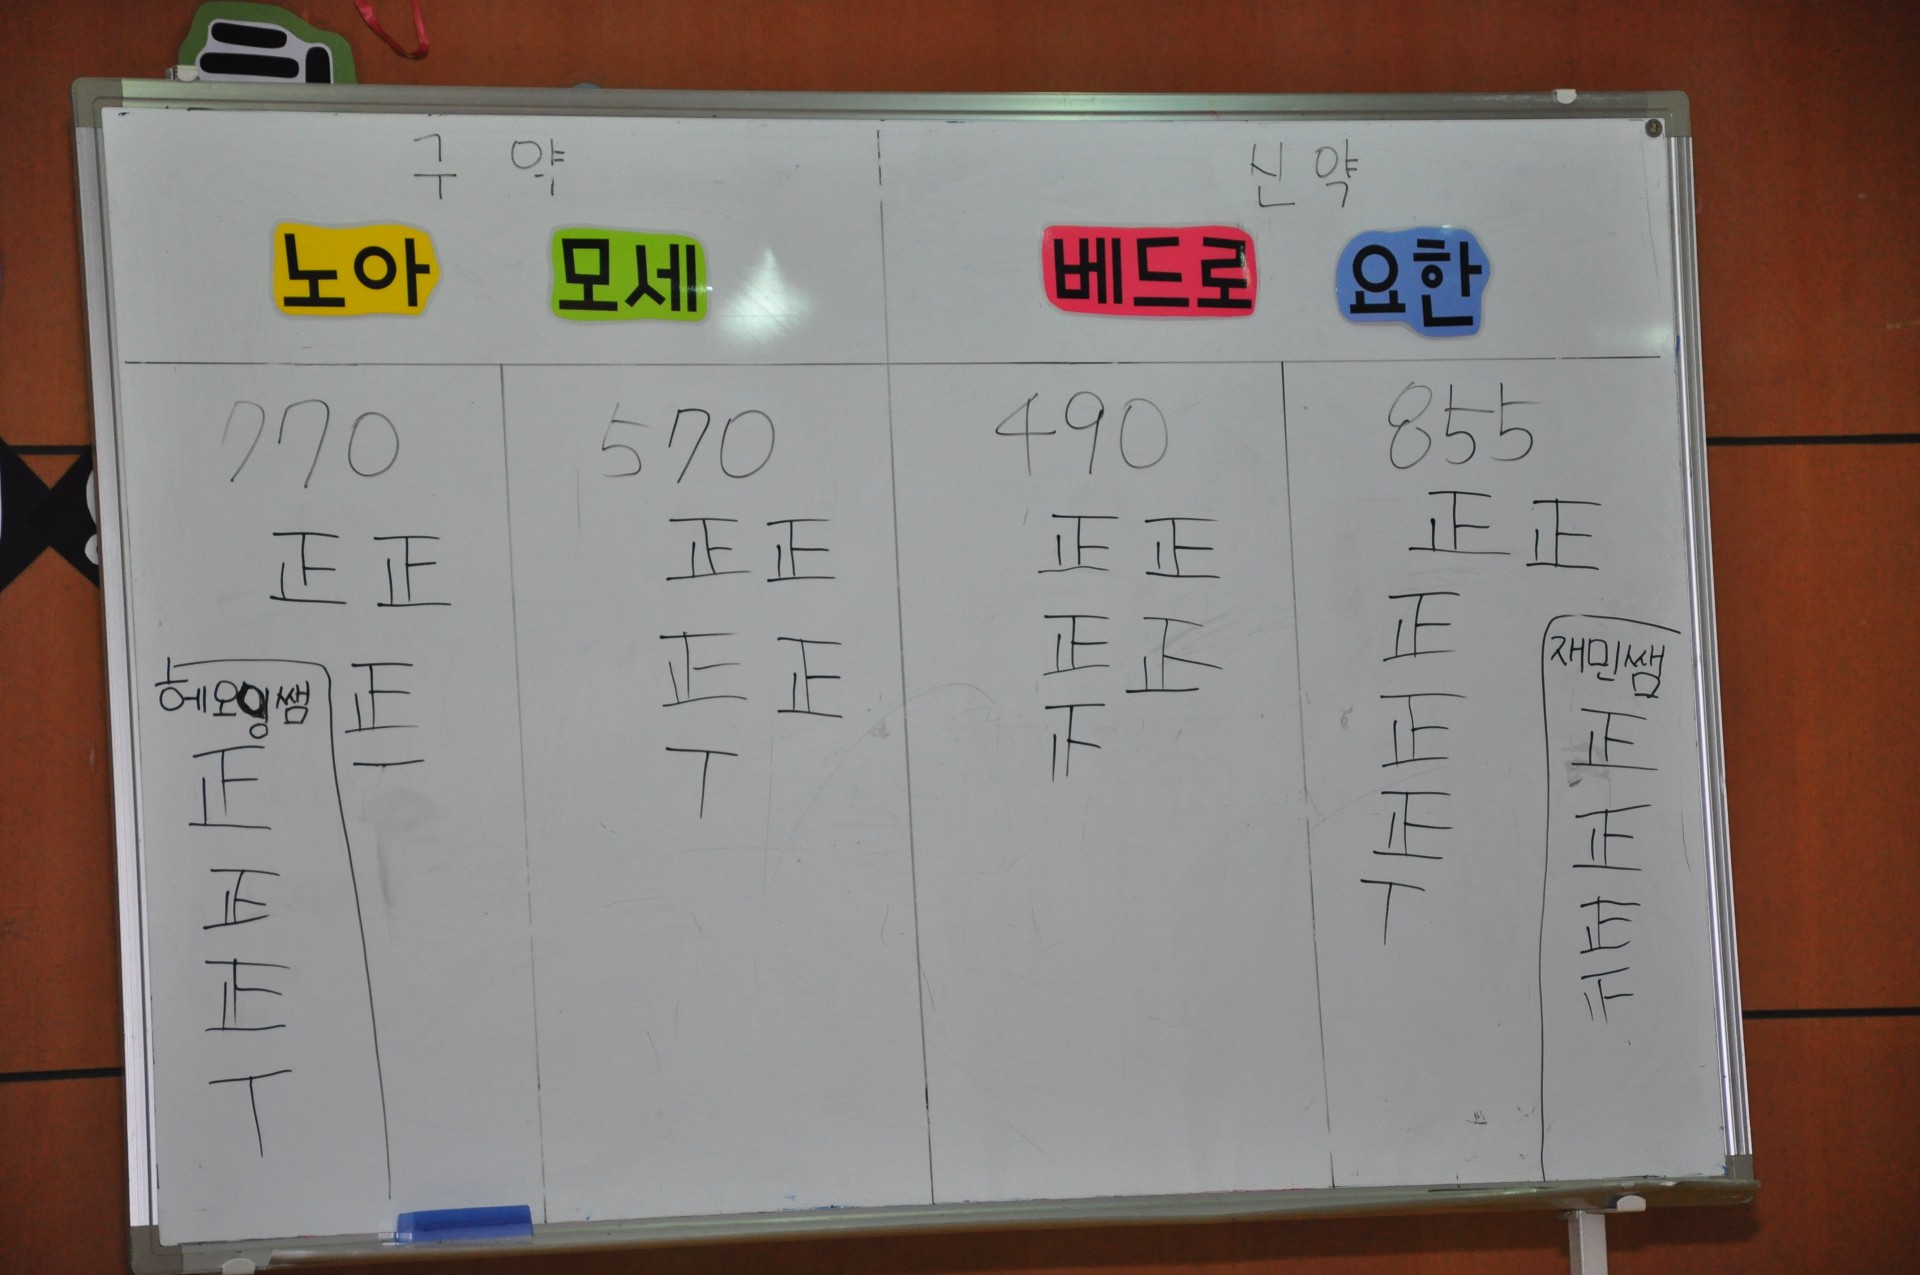 구약 신약
노아 모세 베드로 요한
770 570 490 855
正正 正正 正正 正正
正正 正正 正
正
一
丅
正
正
丅
혜영쌤
正
正
正
丅
재민쌤
正
正
正